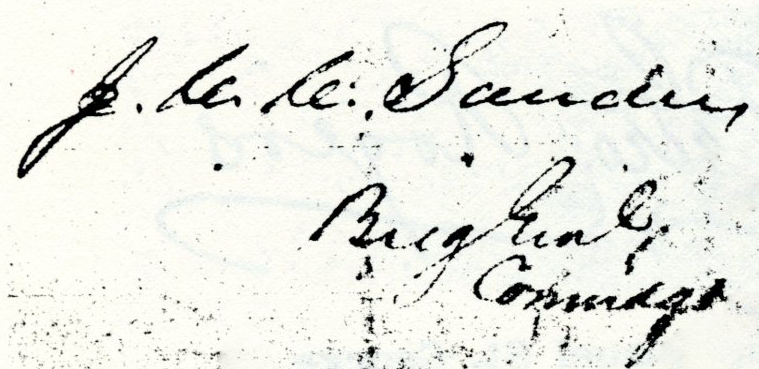 J. C. C. Sanders,
Brig Genl,
Commdg